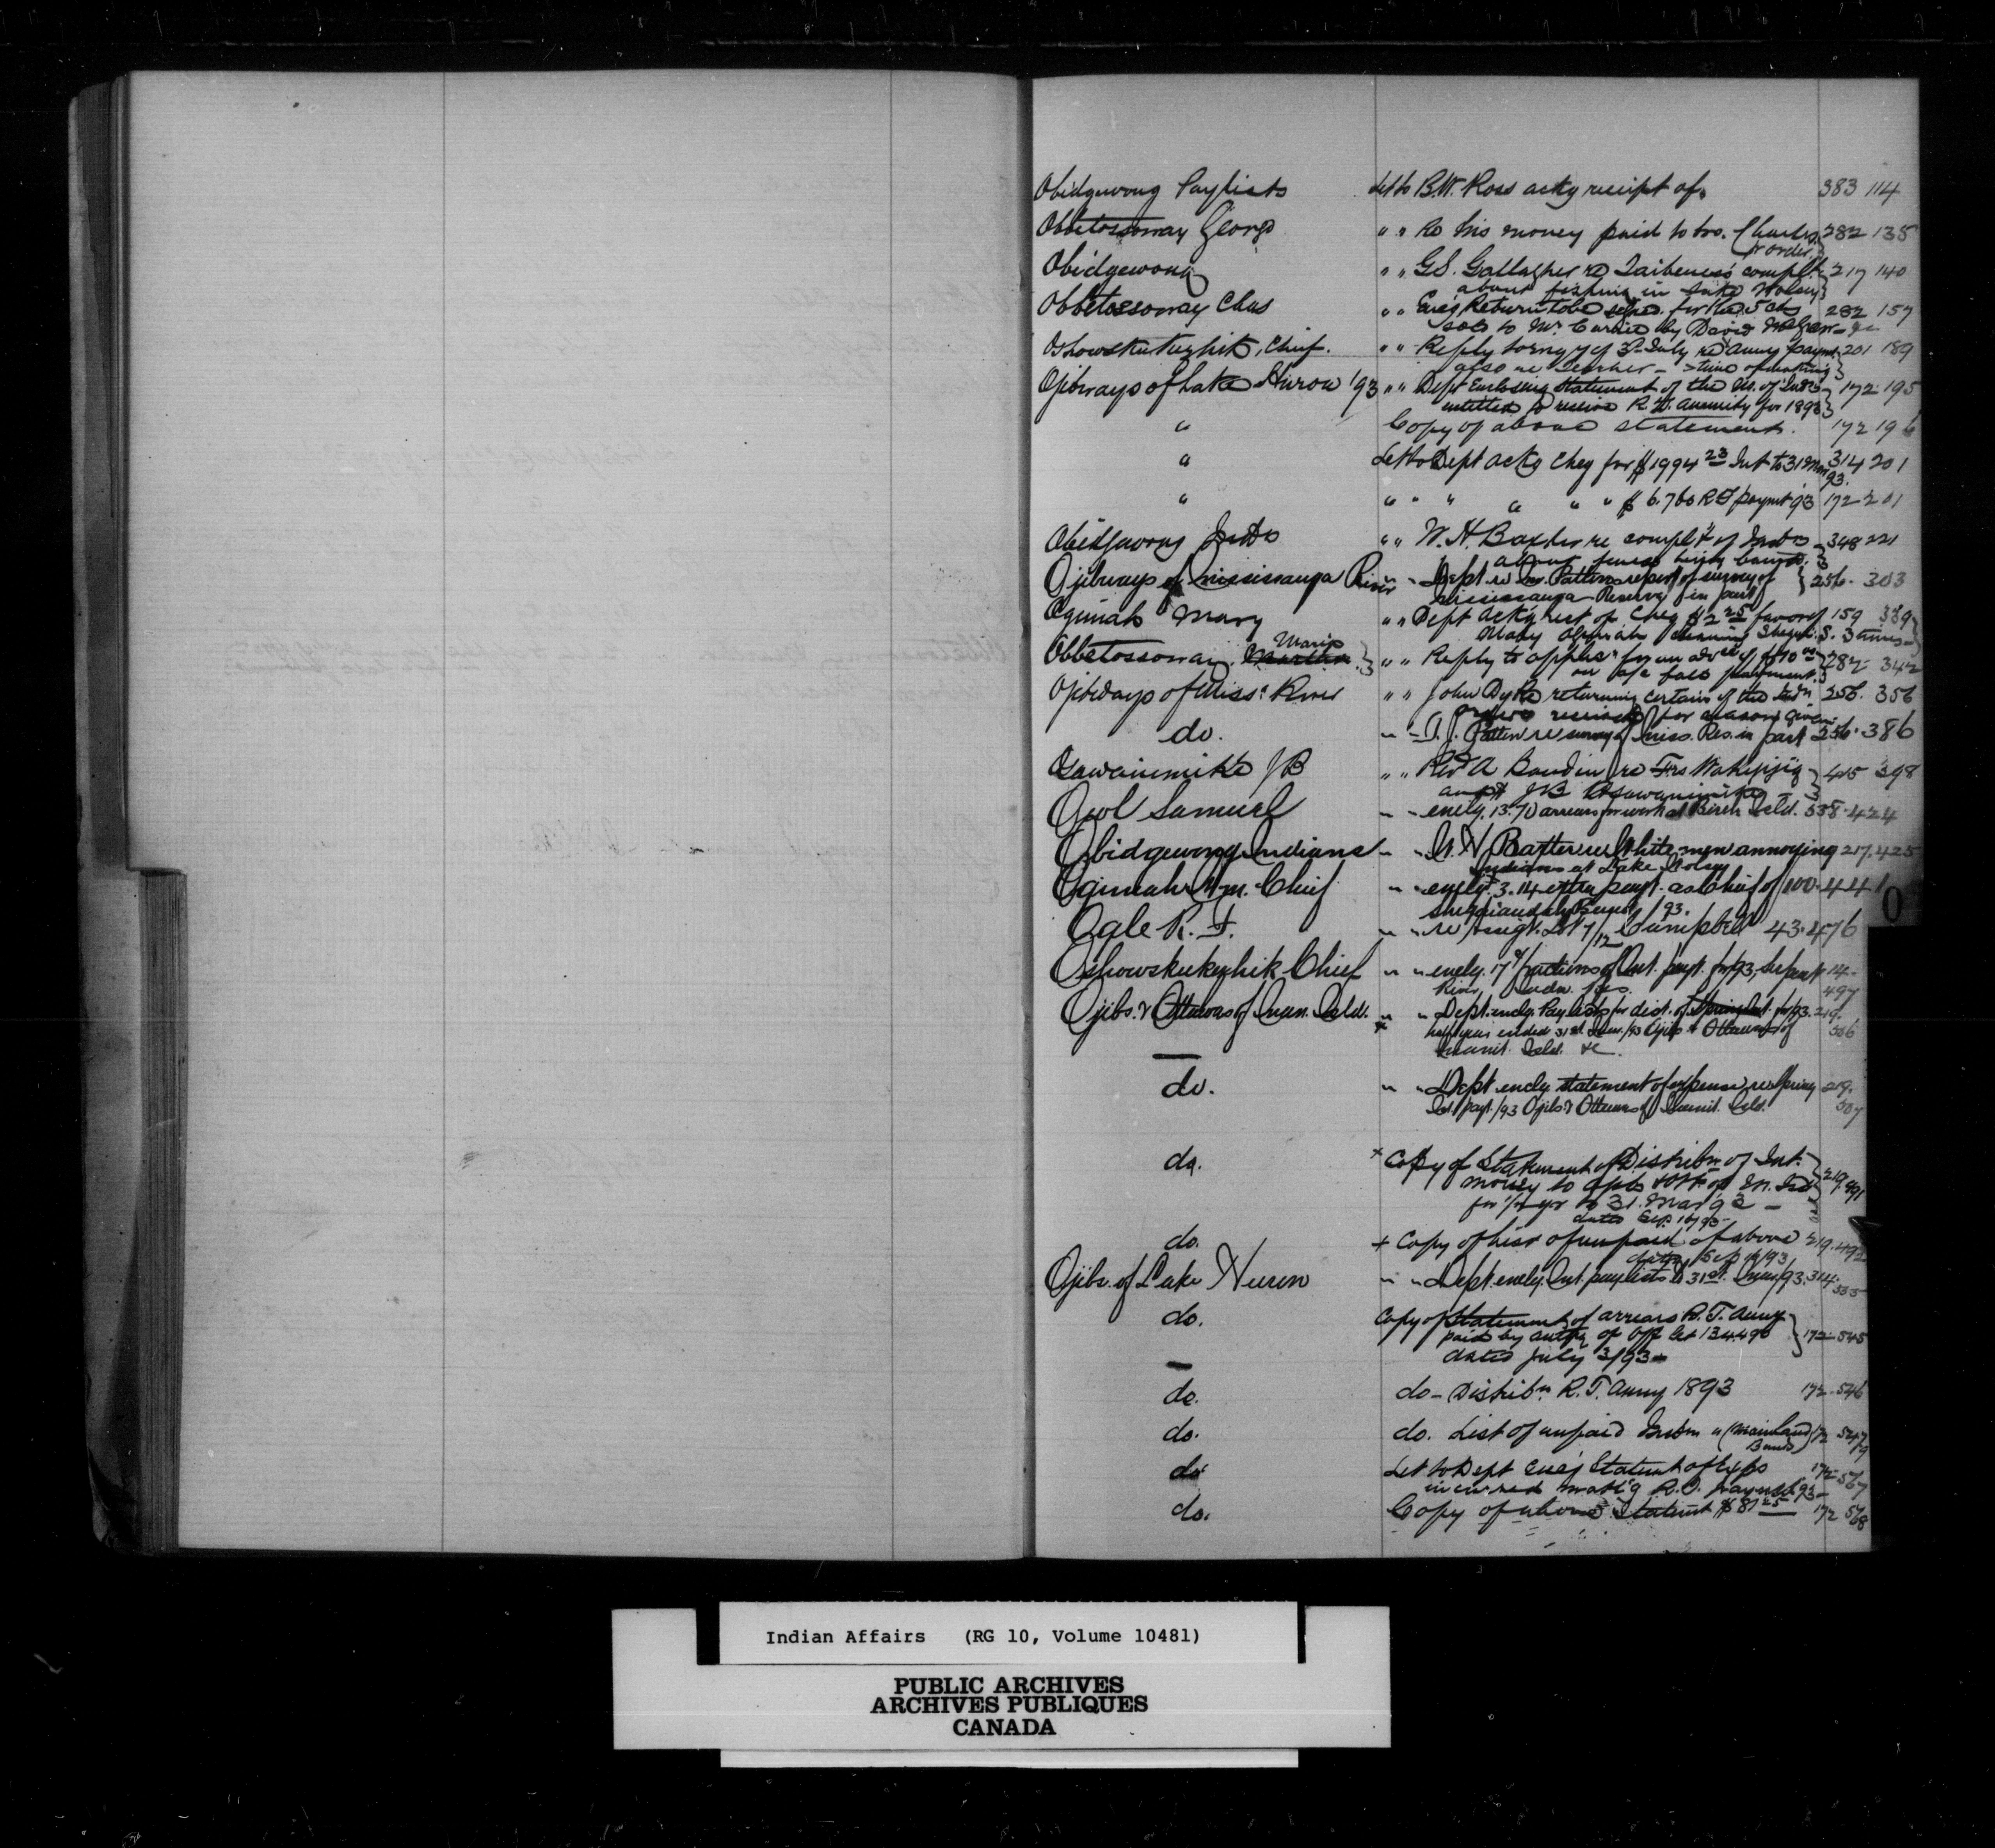 Obidgewong Paylists Let to B.W. Ross ackg receipt of. 383 114
Obbetossoway George " " Re his money paid to bro. Charles 282 135
or order
Obidgewong " " G.S. Gallagher re complt. 217 140
about fishing in Lake Wolsey
Obbetossoway Chas " " Encg Return to be signed for 282 157
sold to Mr. by David
Oshowskukezhik, Chief. " " Reply to re anny paymt 201 189
also re Teacher - time of
Ojibways of Lake Huron '93 " " Dept Enclosing Statement of the No. of Inds 172 195
entitled to receive R.T. annuity for 1893
" Copy of above statement. 172 196
" Let to Dept ackg Cheq for $1994 23 Int to 31 Mar 314 201
93.
" " " " " " " $6.760 R T paymt '93 172 201
Obidgewong Inds " " W.H. Baxter re complt of Inds 348 221
about fences being burnt
Ojibways of Mississauga River " " Dept re Mr. Pattens report of survey of 256. 303
Mississauga Reserve in part
Ogimah Mary " " Dept ackg rect of Cheq $2 25 favor of 159 339
Mary Ogimah cleaning S. 3 times
Marie
Obbetossoway, Martha " " Reply to applic for an adv of $10 00 282 342
on a/c fall payment.
Ojibways of Miss. River " " John Dyke returning certain of the 256. 356
received for reasons given
do. " " D.J. Patten re survey of Miss. Res. in part 256. 386
Osawanimiki JB " " Revd A Baudin re Frs Wakegijig 415 398
and JB Osawanimiki
Owl Samuel " " enclg. 13.70 arrears for work at Birch Isld. 338. 424
Obidgewong Indians " " W.H. Baxter re White men annoying 217. 425
Indians at Lake Wolsey
Ogimah Wm. Chief " " enclg. 3.14 extra payt. as Chief of 100. 441
Sheguiandah Band /93.
Ogle R. F. " " re assigt. Lot 7/12 Campbell 43. 476
Oshowskukezhik Chief " " enclg. 17 of Int. payt. for 93, Serpent 14.
River Indn. Res. 497
Ojibs. & Ottawas of Man. Isld. " " Dept. enclg. Paylists for dist. of Spring Int. for 93. 219.
half year ended 31st Mar. /93 Ojibs & Ottawas of 506
Manit. Isld. &c.
do. " " Dept. enclg. statement of expense re Spring 219.
Int. payt. /93 Ojibs & Ottawas of Manit. Isld. 507
do. + Copy of Statement of Distribn of Int. 219. 491
money to Ojibs & Ott. of M. Isd
for 1/2 yr to 31. Mar 93 -
dated Sep. 16/93 -
do. + Copy of List of unpaid of above 219. 492
dated Sep 16/93
Ojibs. of Lake Huron " " Dept. enclg. Int. paylists to 31st. Mar. 93. 314.
535
do. Copy of Statement of arrears R.T. Anny 172. 545
paid by authy of Off let 134.496
dated July 3/93 -
do. do - Distribn. R.T. Anny 1893 172. 546
do. do. List of unpaid Indn " (Mainland 172 547
Bands)
do Let to Dept Encg Statemt of Exps 172. 567
incurred making R.T. paymt. 93 -
do. Copy of above Statemt $87 25 172 568
O
Indian Affairs (RG 10, Volume 10481)
PUBLIC ARCHIVES
ARCHIVES PUBLIQUES
CANADA